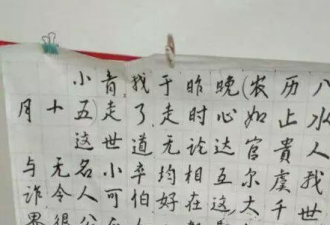 小青,我于昨晚(农历八
月十五)走了,走时心如止水
这世道无论达官貴人
与无名小卒均相互尔虞我
诈令人可怕好在这大千世
界很公